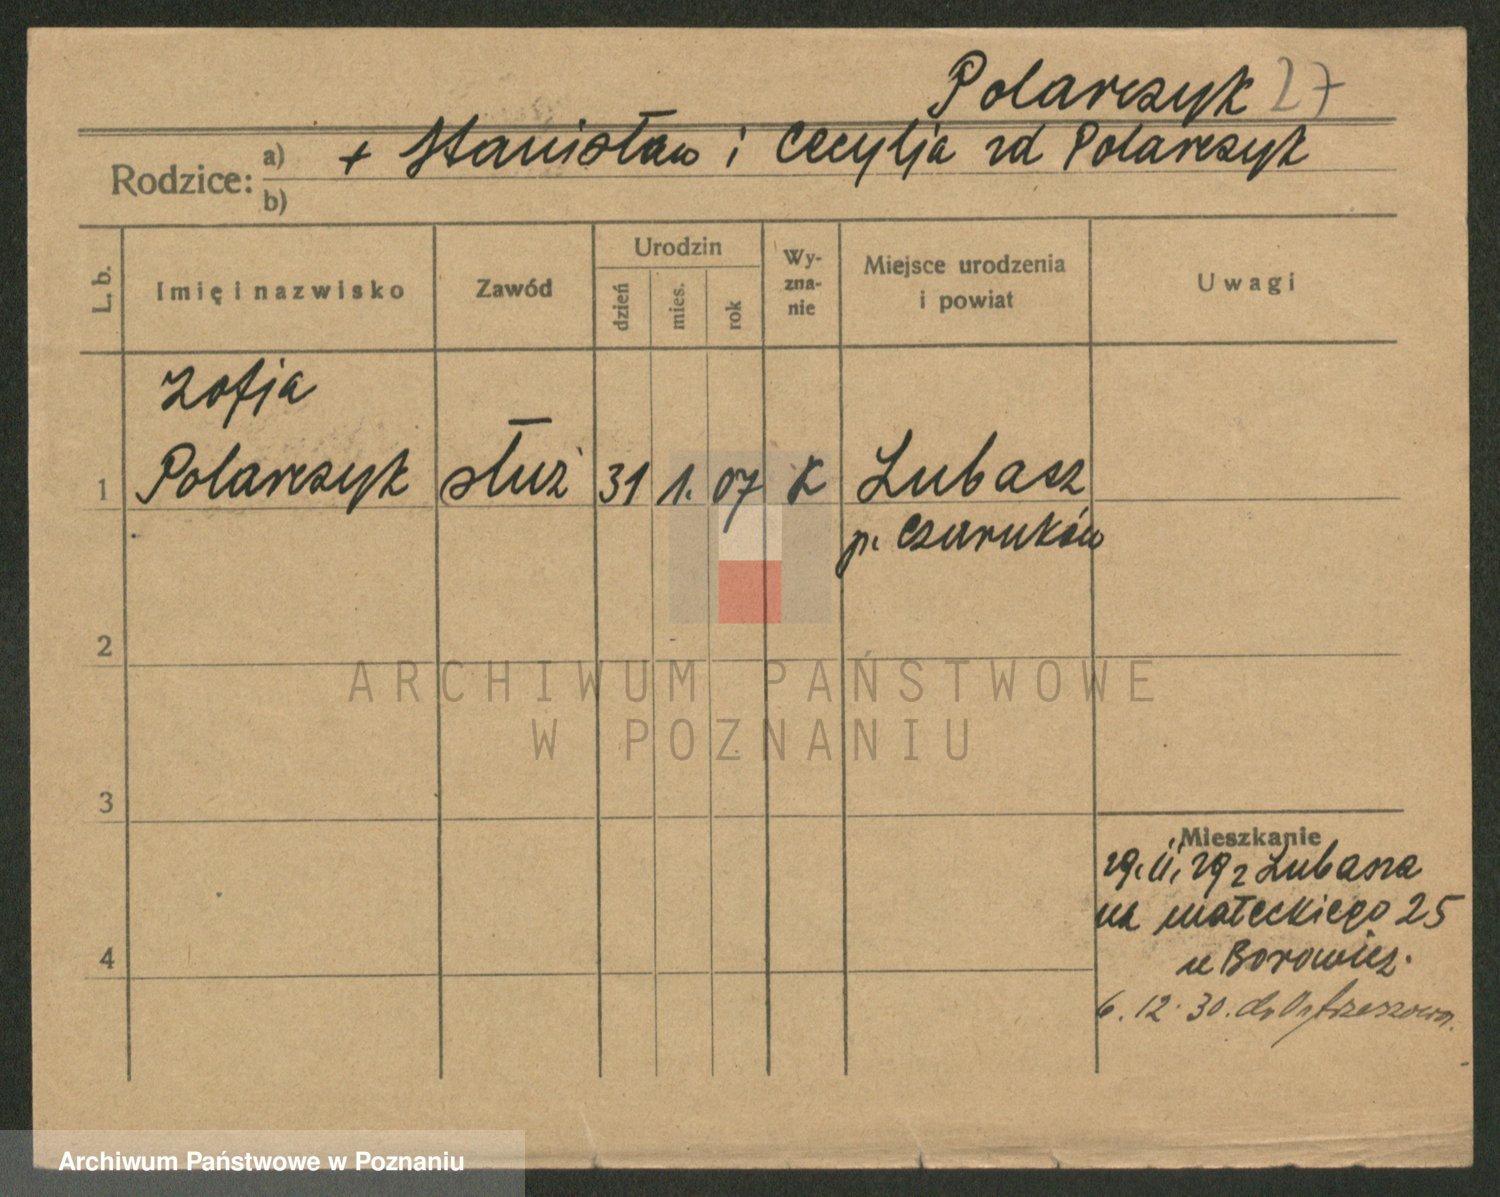 Polarczyk 27
Rodzice: a) + Stanisław i Cecylja rd Polarczyk
b)
L. b.
Imię i nazwisko
Zawód
Urodzin
dzień
mies.
rok
Wy-
zna-
nie
Miejsce urodzenia
i powiat
Uwagi
Zofja
1 Polarczyk służ 31 1. 07 K Lubasz
p. Czarnków
2
ARCHIWUM PAŃSTWOWE
W POZNANIU
3
Mieszkanie
29. II. 29 z Lubasza
na Małeckiego 25
u Borowicz.
4
6. 12. 30. do
Archiwum Państwowe w Poznaniu